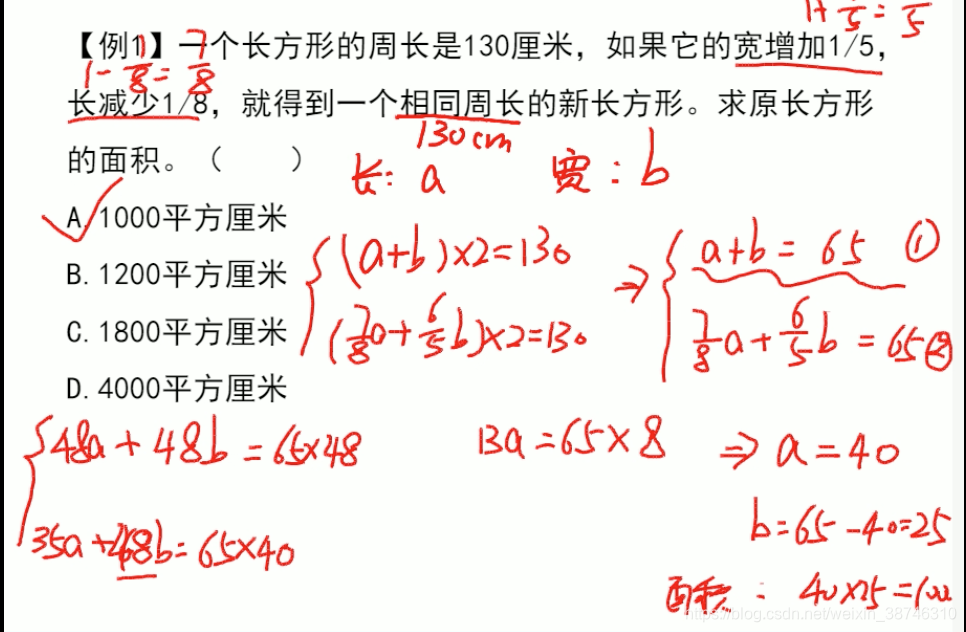 1+ 1/5 = 6/5
【例1】一个长方形的周长是130厘米，如果它的宽增加1/5，
1- 1/8 = 7/8
长减少1/8，就得到一个相同周长的新长方形。求原长方形
130cm
的面积。（　　）
长: a 宽: b
A.1000平方厘米
B.1200平方厘米
C.1800平方厘米
D.4000平方厘米
(a+b)×2=130
(7/8a+6/5b)×2=130
⇒
a+b=65 ①
7/8a+6/5b=65②
48a+48b=65×48
35a+48b=65×40
13a=65×8 ⇒ a=40
b=65-40=25
面积: 40×25=1000
https://blog.csdn.net/weixin_38746310